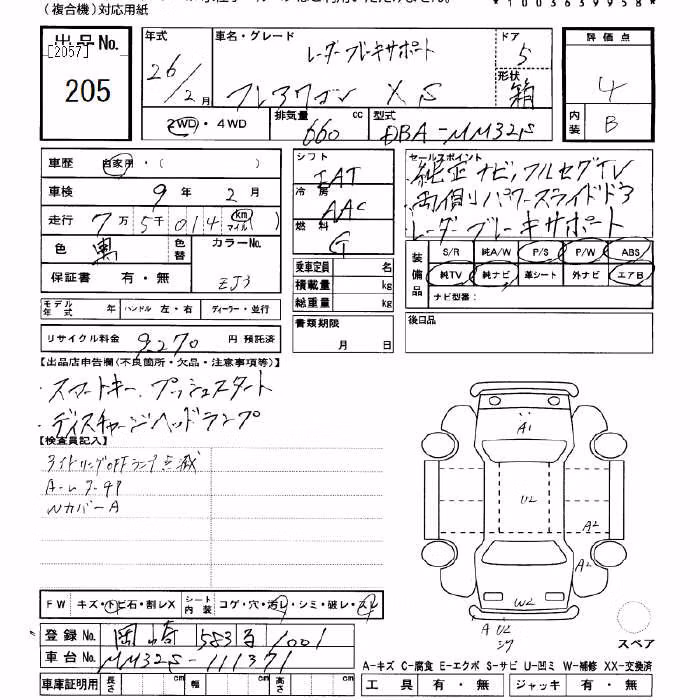 (複合機)対応用紙
*1003639958*
出品No.
[2057]
205
年式
26/2月
車名・グレード
レーダーブレーキサポート
フレアワゴン XS
ドア
5
形状
箱
評価点
4
内装
B
2WD・4WD
排気量
660
cc
型式
DBA-MM32S
車歴
自家用・( )
車検
9年2月
走行
7万5千014
km
マイル
色
黒
色替
カラーNo.
ZJ3
保証書
有・無
シフト
IAT
冷房
AAC
燃料
G
乗車定員
名
積載量
kg
総重量
kg
セールスポイント
・純正ナビ,フルセグTV
・両側パワースライドドア
・レーダーブレーキサポート
装備品
S/R
純A/W
P/S
P/W
ABS
純TV
純ナビ
革シート
外ナビ
エアB
ナビ型番:
モデル年式
年
ハンドル
左・右
ディーラー・並行
リサイクル料金
9,270
円
預託済
書類期限
月
日
後日品
【出品店申告欄(不良箇所・欠品・注意事項等)】
・スマートキー.プッシュスタート
・ディスチャージヘッドランプ
【検査員記入】
アイドリングOFFランプ点滅
Wカバー A
A1
U2
A2
A2
W2
A
U2
FW
キズ・トビ石・割レX
シート内装
コゲ・穴・汚レ・シミ・破レ・スレ
スペア
登録No.
岡崎 583 る 1001
車台No.
MM32S-111371
A-キズ C-腐食 E-エクボ S-サビ U-凹ミ W-補修 XX-交換済
車庫証明用
長さ
cm
幅
cm
高さ
cm
工具
有・無
ジャッキ
有・無